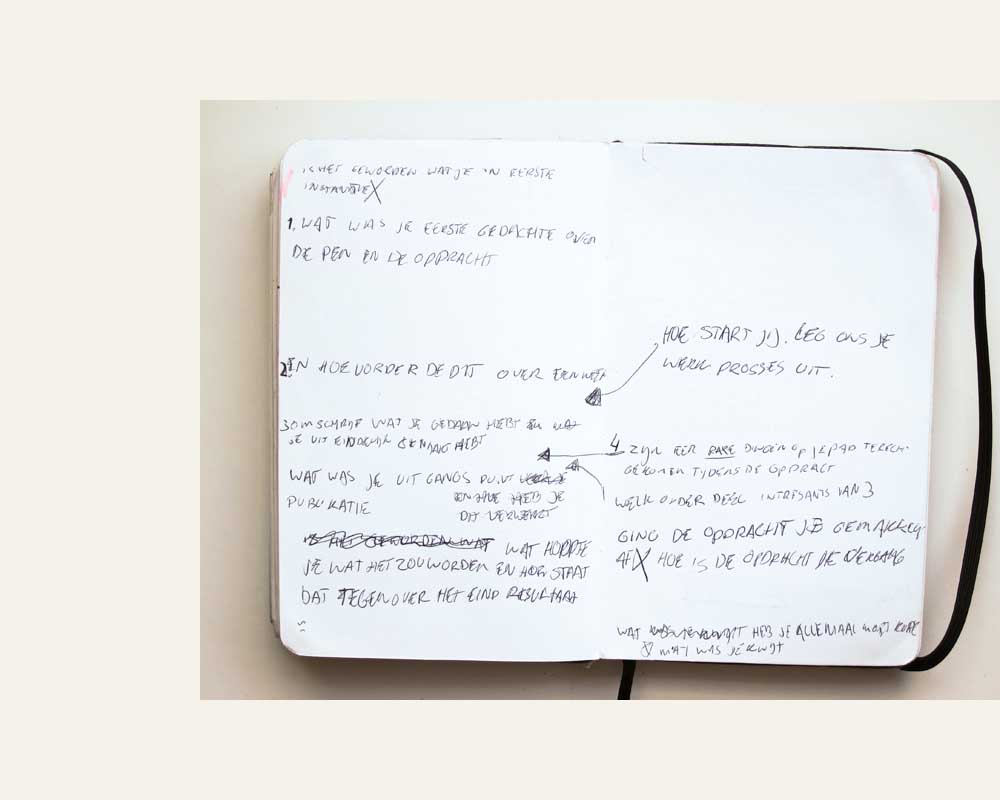 IS HET GEWORDEN WAT JE IN EERSTE
INSTANTIE
1. WAT WAS JE EERSTE GEDACHTE OVER
DE PEN EN DE OPDRACHT
2 EN HOE VORDERDE DIT OVER EEN WEEK
3 OMSCHRIJF WAT JE GEDAAN HEBT EN WAT
JE UIT EINDELIJK GEMAAKT HEBT
WAT WAS JE UIT GANGS PUNT
PUBLIKATIE
EN HOE HEB JE
DIT VERWERKT
IS HET GEWORDEN WAT WAT HOOPTE
JE WAT HET ZOU WORDEN EN HOE STAAT
DAT TEGENOVER HET EIND RESULTAAT
HOE START JIJ. LEG ONS JE
WERK PROSSES UIT.
4 ZIJN EER RARE DINGEN OP JE PAD TERECH-
GEKOMEN TIJDENS DE OPDRACT
WELK ONDER DEEL INTRESANTS VAN 3
GING DE OPDRACHT JE GEMAKKELIJK
AF HOE IS DE OPDRACHT
WAT HEB JE ALLEMAAL
WAT WAS JE KWIJT